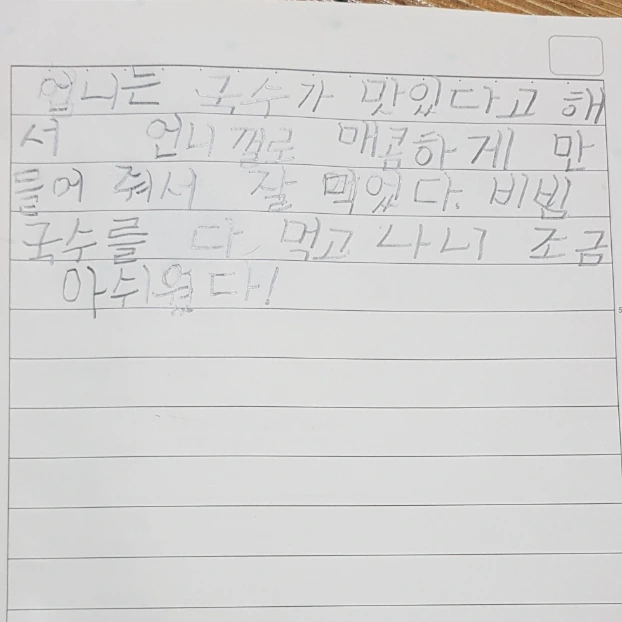 언니는 국수가 맛있다고 해
서 언니 껄로 매콤하게 만
들어 줘서 잘 먹었다. 비빔
국수를 다 먹고 나니 조금
아쉬웠다!
5